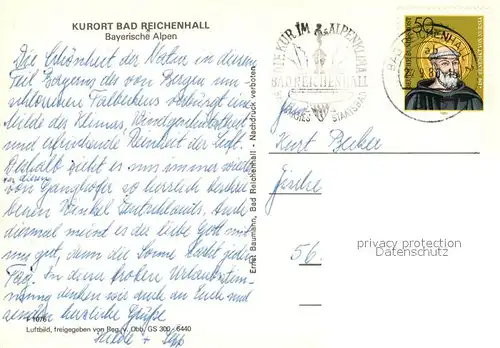 KURORT BAD REICHENHALL
Bayerische Alpen
Die Schönheit der Natur in diesem
Teil Bayerns des von Bergen um-
schlossenen Talbeckens vereint
Milde des Klimas, Windgeschütztheit
und erfrischende Reinheit der Luft.
Deshalb zieht es uns immer wieder
von Ganghofer so herrlich beschrie-
benen Winkel Deutschlands. Auch
diesmal meint es der liebe Gott mit
uns gut, denn die Sonne lacht jeden
Tag. In dieser frohen Urlaubsstim-
mung denken wir auch an Euch und
senden herzliche Grüße
Hilde + Sepp
Luftbild, freigegeben von Reg. v. Obb. GS 300 - 6440
Ernst Baumann, Bad Reichenhall - Nachdruck verboten
DIE KUR IM ALPENKLIMA
BAD REICHENHALL
STAATSBAD
BAD REICHENHALL
50
DEUTSCHE BUNDESPOST
Kurt Becker
56.
privacy protection
Datenschutz